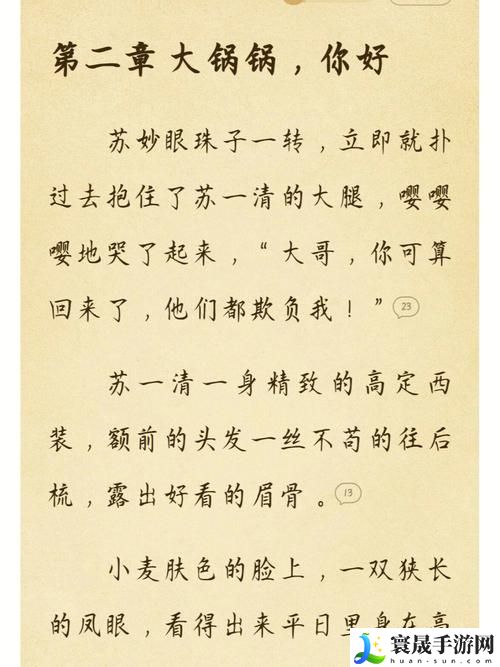 第二章 大锅锅，你好
苏妙眼珠子一转，立即就扑
过去抱住了苏一清的大腿，嘤嘤
嘤地哭了起来，“大哥，你可算
回来了，他们都欺负我！”
23
苏一清一身精致的高定西
装，额前的头发一丝不苟的往后
梳，露出好看的眉骨。
13
小麦肤色的脸上，一双狭长
的凤眼，看得出来平日里身在高
寰晟手游网
huan-sun.com